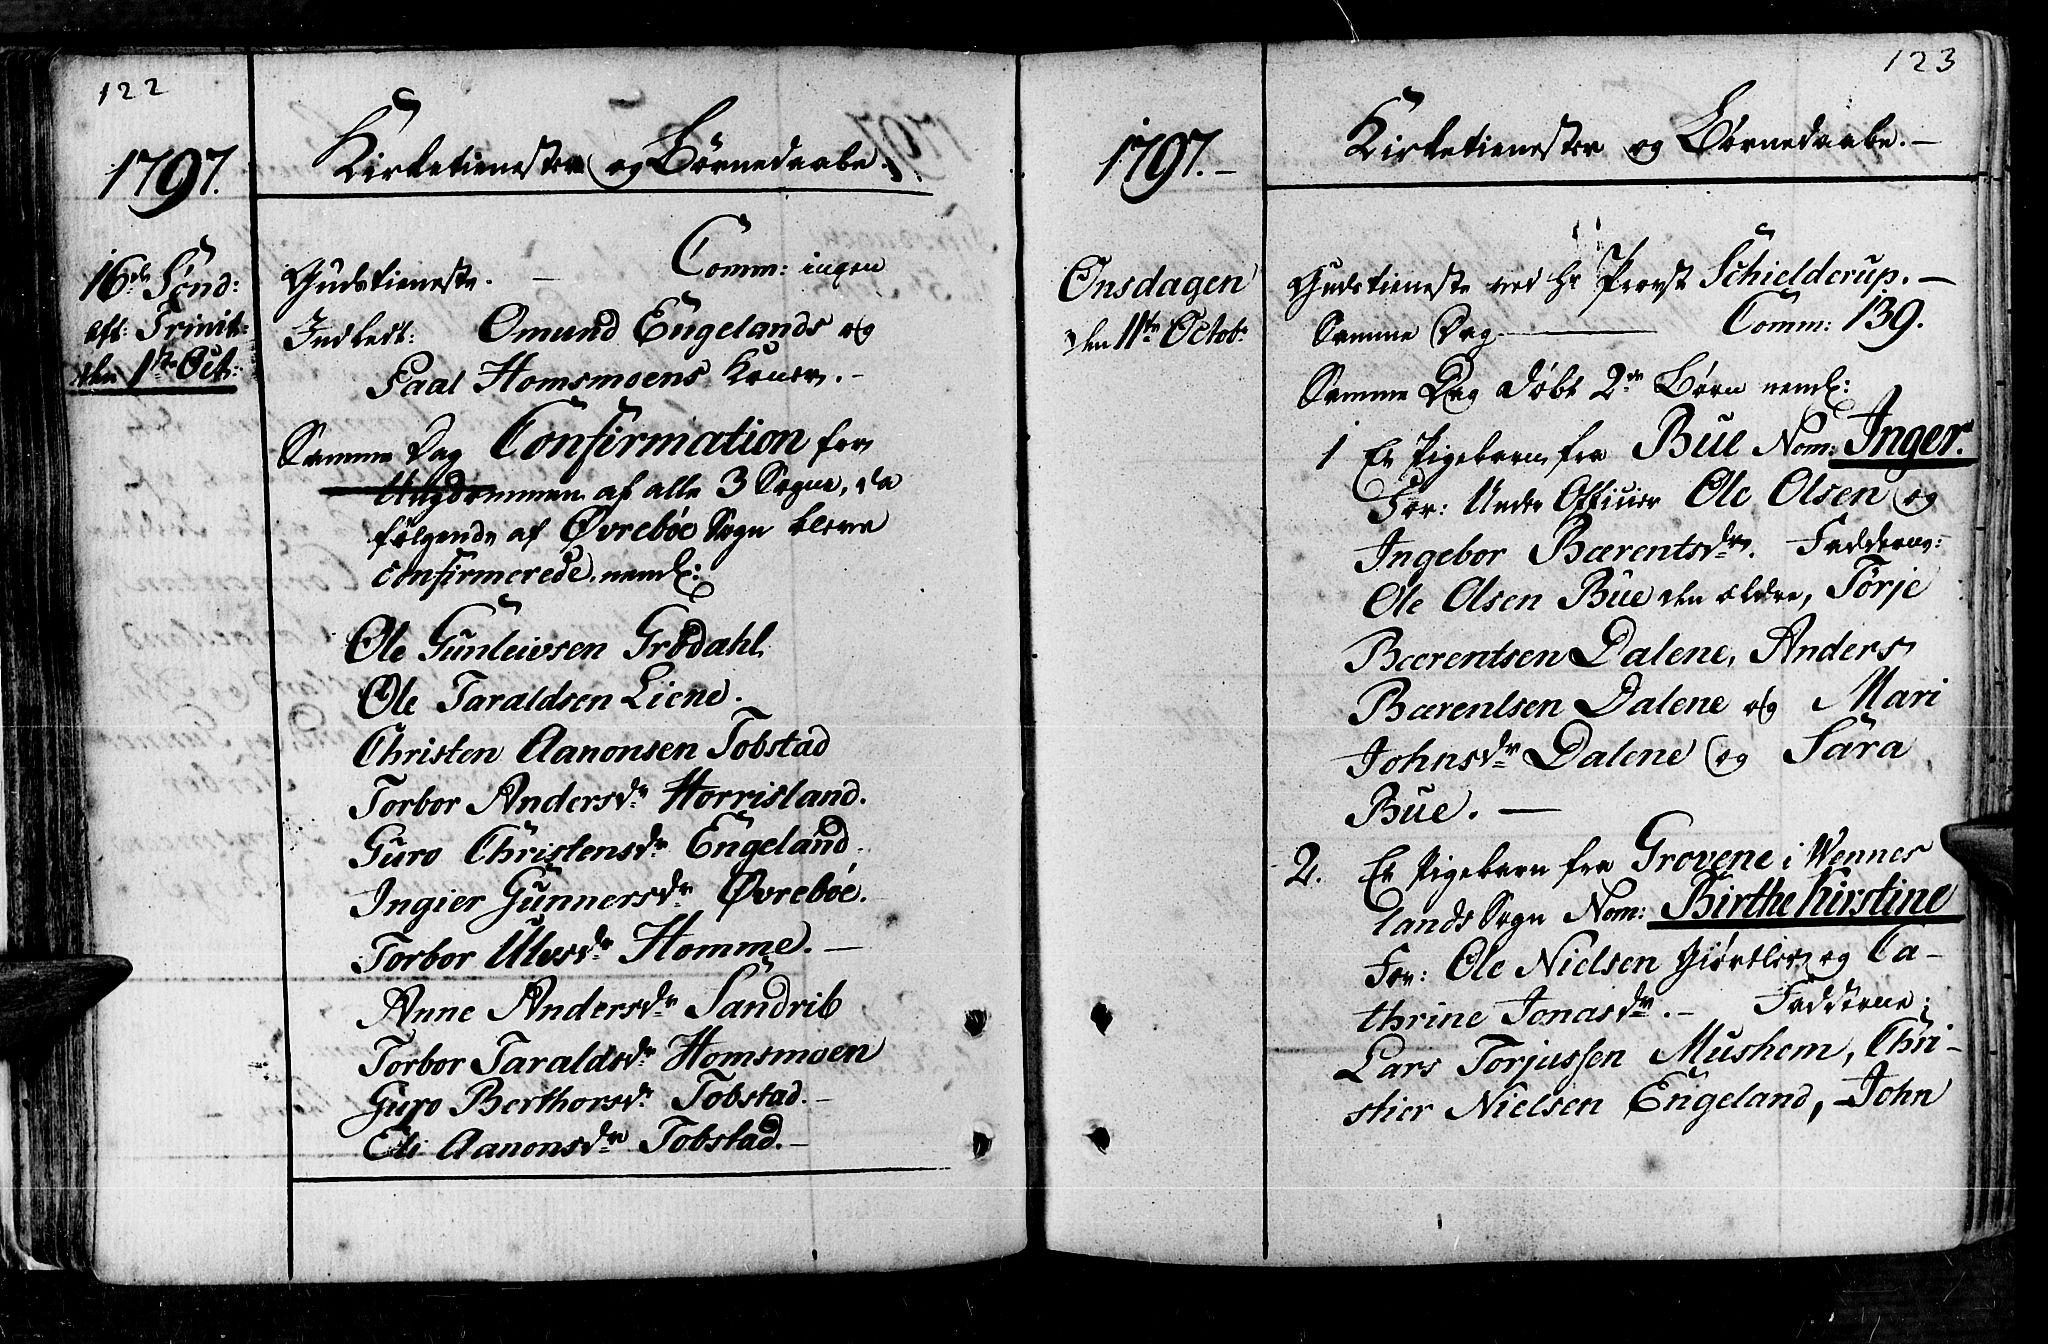 122
1797.
Kirketienester og Børnedaabe.
16de Sønd:
aft: Trinit:
den 1ste Oct:
Gudstieneste. — Comm: ingen
Indledt: Omund Engelands og
Paal Homsmoens Koner. —
Samme Dag Confirmation for
Ungdommen af alle 3 Sogne, da
følgende af Øvrebøe Sogn bleve
confirmerede nemlig:
Ole Gunleivsen Grødahl
Ole Taraldsen Liene.
Christen Aanonsen Tobstad
Torbor Andersdr Horrisland.
Guro Christensdr Engeland.
Ingier Gunnersdr Øvrebøe.
Torbor Ulvsdr Homme. —
Anne Andersdr Sandrib
Torbor Taraldsdr Homsmoen
Guro Berthorsdr Tobstad. —
Eli Aanonsdr Tobstad. —
123
1797. —
Kirketienester og Børnedaabe. —
Onsdagen
den 11te Octob:
Gudstieneste ved Hr Provst Schielderup. —
Samme Dag — Comm: 139.
Samme Dag døbt 2de Børn neml:
1 Et Pigebarn fra Bue Nom: Inger.
For: Under Officier Ole Olsen og
Ingebor Bærentsdr. Fadderne:
Ole Olsen Bue den ældre, Tørje
Bærentsen Dalene, Anders
Bærentsen Dalene og Mari
Johnsdr Dalene og Sara
Bue. —
2. Et Pigebarn fra Grovene i Wennes
lands Sogn Nom: Birthe Kirstine
For: Ole Nielsen Giørtler og Ca-
thrine Jonasdr. — Fadderne:
Lars Torjussen Mushom, Chri-
stier Nielsen Engeland, John